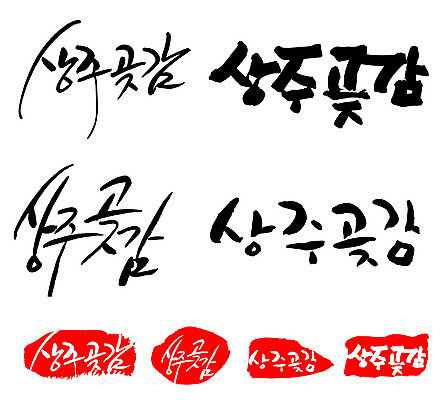 상주곶감 상주곶감
상주곶감 상주곶감
상주곶감 상주곶감 상주곶감 상주곶감